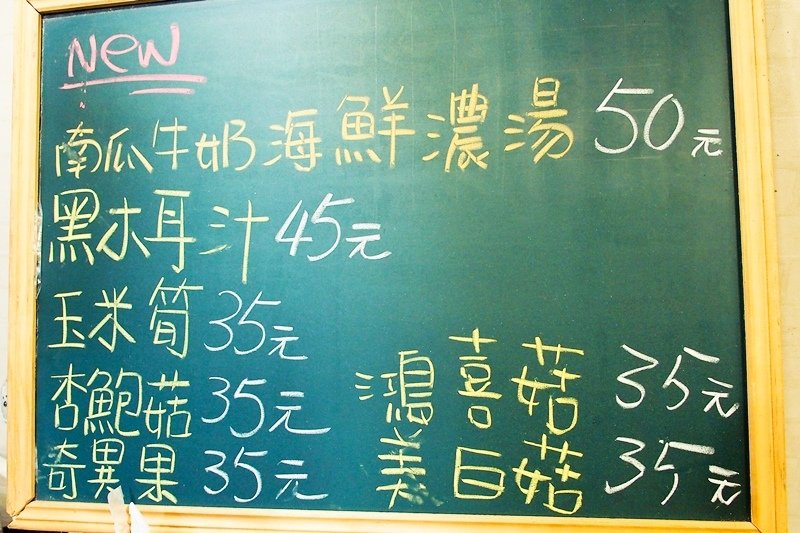 New
南瓜牛奶海鮮濃湯50元
黑木耳汁45元
玉米筍35元
杏鮑菇35元
鴻喜菇35元
奇異果35元
美白菇35元